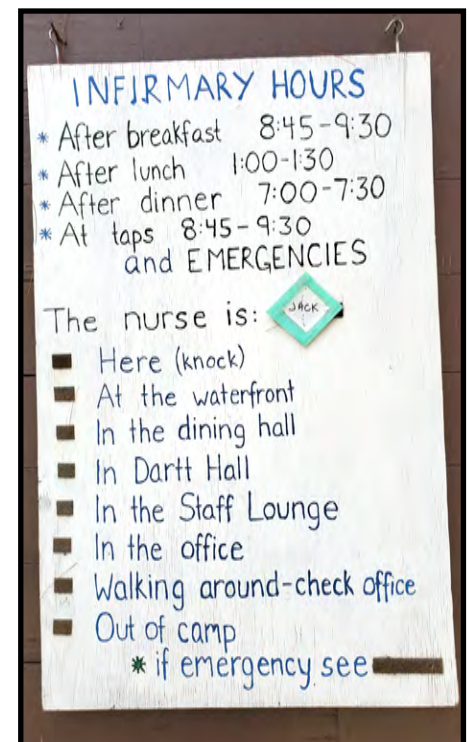 INFIRMARY HOURS
* After breakfast 8:45-9:30
* After lunch 1:00-1:30
* After dinner 7:00-7:30
* At taps 8:45-9:30
and EMERGENCIES
The nurse is: JACK
Here (knock)
At the waterfront
In the dining hall
In Dartt Hall
In the Staff Lounge
In the office
Walking around-check office
Out of camp
* if emergency see